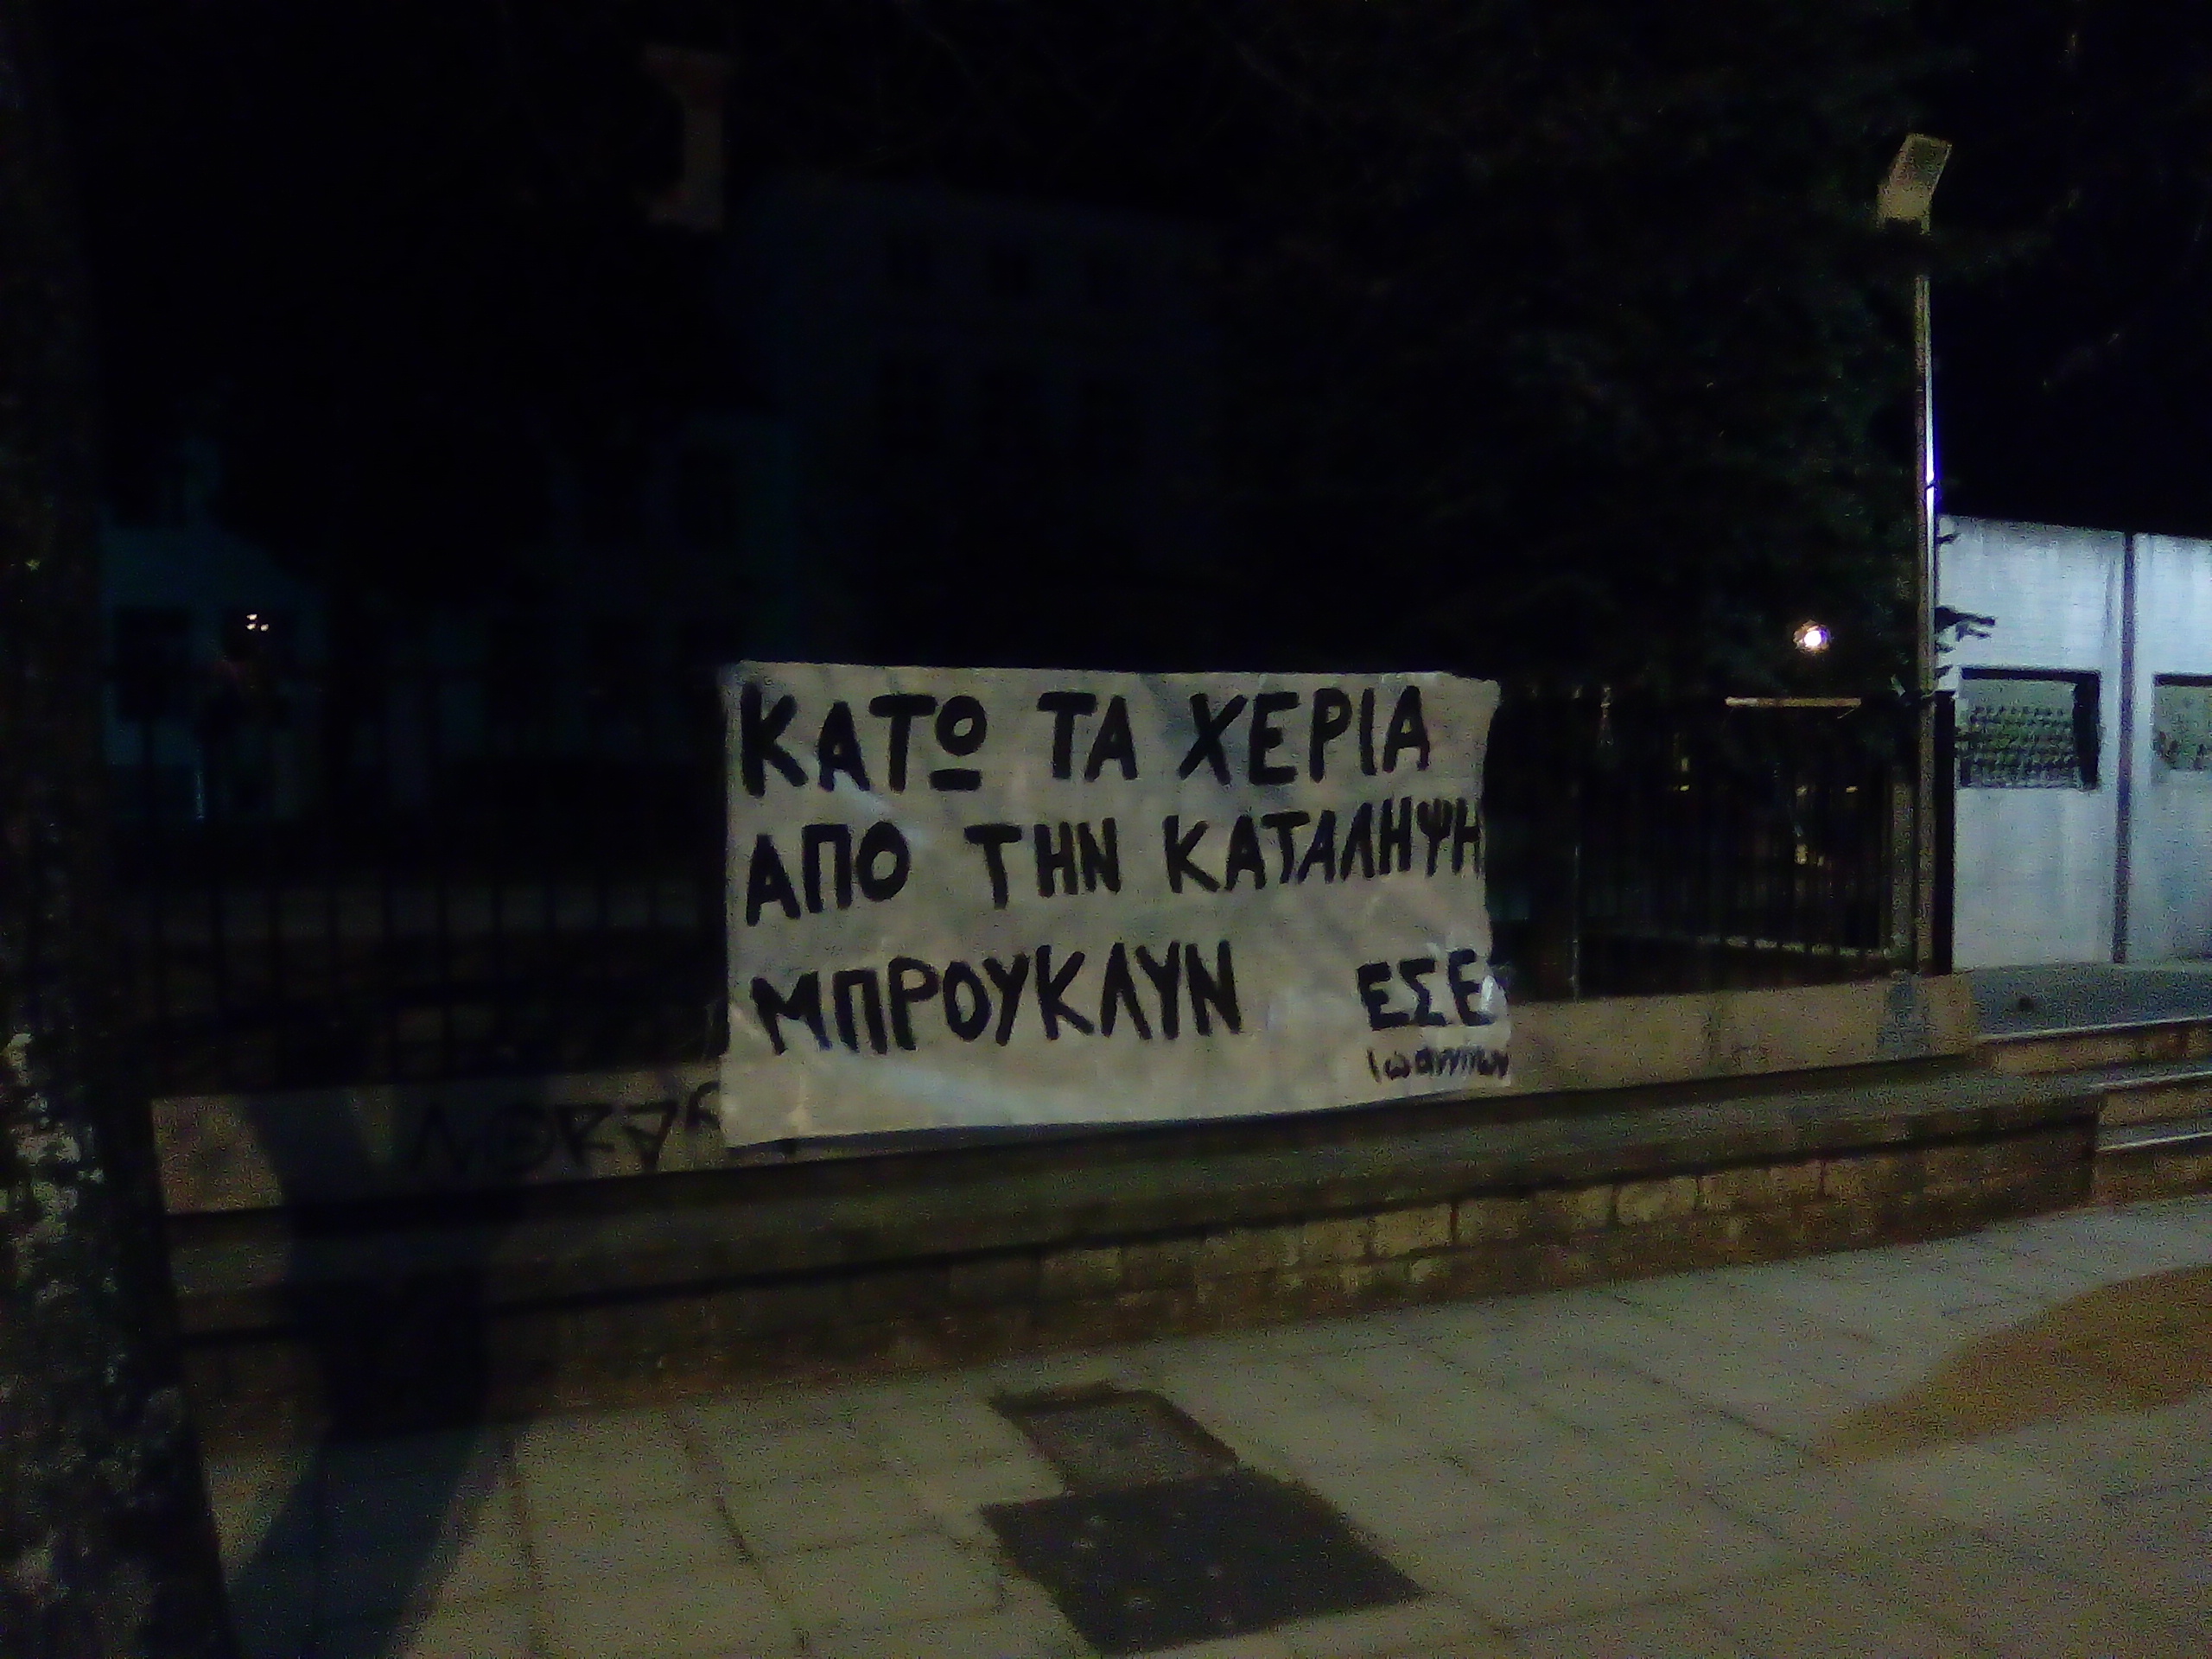 ΚΑΤΩ ΤΑ ΧΕΡΙΑ
ΑΠΟ ΤΗΝ ΚΑΤΑΛΗΨΗ
ΜΠΡΟΥΚΛΥΝ ΕΣΕ
Ιωαννίνων